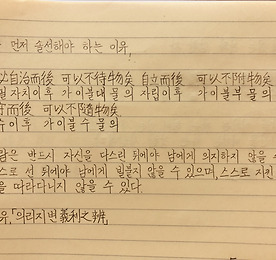 먼저 솔선해야 하는 이유,
以自治而後 可以不待物矣 自立而後 可以不附物矣
자치이후 가이불대물의 자립이후 가이불부물의
守而後 可以不隨物矣
수이후 가이불수물의
람은 반드시 자신을 다스린 뒤에야 남에게 의지하지 않을 수
스로 선 뒤에야 남에게 빌붙지 않을 수 있으며, 스스로 지킨
을 따라다니지 않을 수 있다.
유, 「의리지변 義利之辨